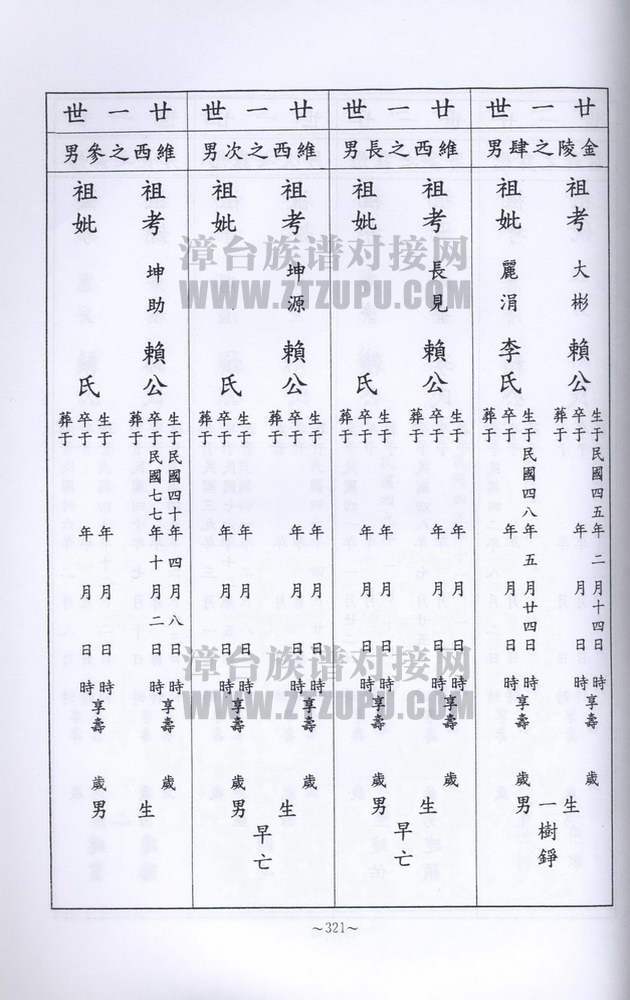 廿一世
金陵之肆男
祖考 大彬 賴公
生于民國四五年二月十四日 時
卒于 年 月 日 時享壽 歲
葬于
祖妣 麗涓 李氏
生于民國四八年五月廿四日 時
卒于 年 月 日 時享壽 歲
葬于
生一男
樹錚
廿一世
維西之長男
祖考 長見 賴公
生于 年 月 日 時
卒于 年 月 日 時享壽 歲
葬于
祖妣 氏
生于 年 月 日 時
卒于 年 月 日 時享壽 歲
葬于
生 男
早亡
廿一世
維西之次男
祖考 坤源 賴公
生于 年 月 日 時
卒于 年 月 日 時享壽 歲
葬于
祖妣 氏
生于 年 月 日 時
卒于 年 月 日 時享壽 歲
葬于
生 男
早亡
廿一世
維西之參男
祖考 坤助 賴公
生于民國四十年四月八日 時
卒于民國七七年十月二日 時享壽 歲
葬于
祖妣 氏
生于 年 月 日 時
卒于 年 月 日 時享壽 歲
葬于
生 男
~321~
漳台族谱对接网
WWW.ZTZUPU.COM
漳台族谱对接网
WWW.ZTZUPU.COM